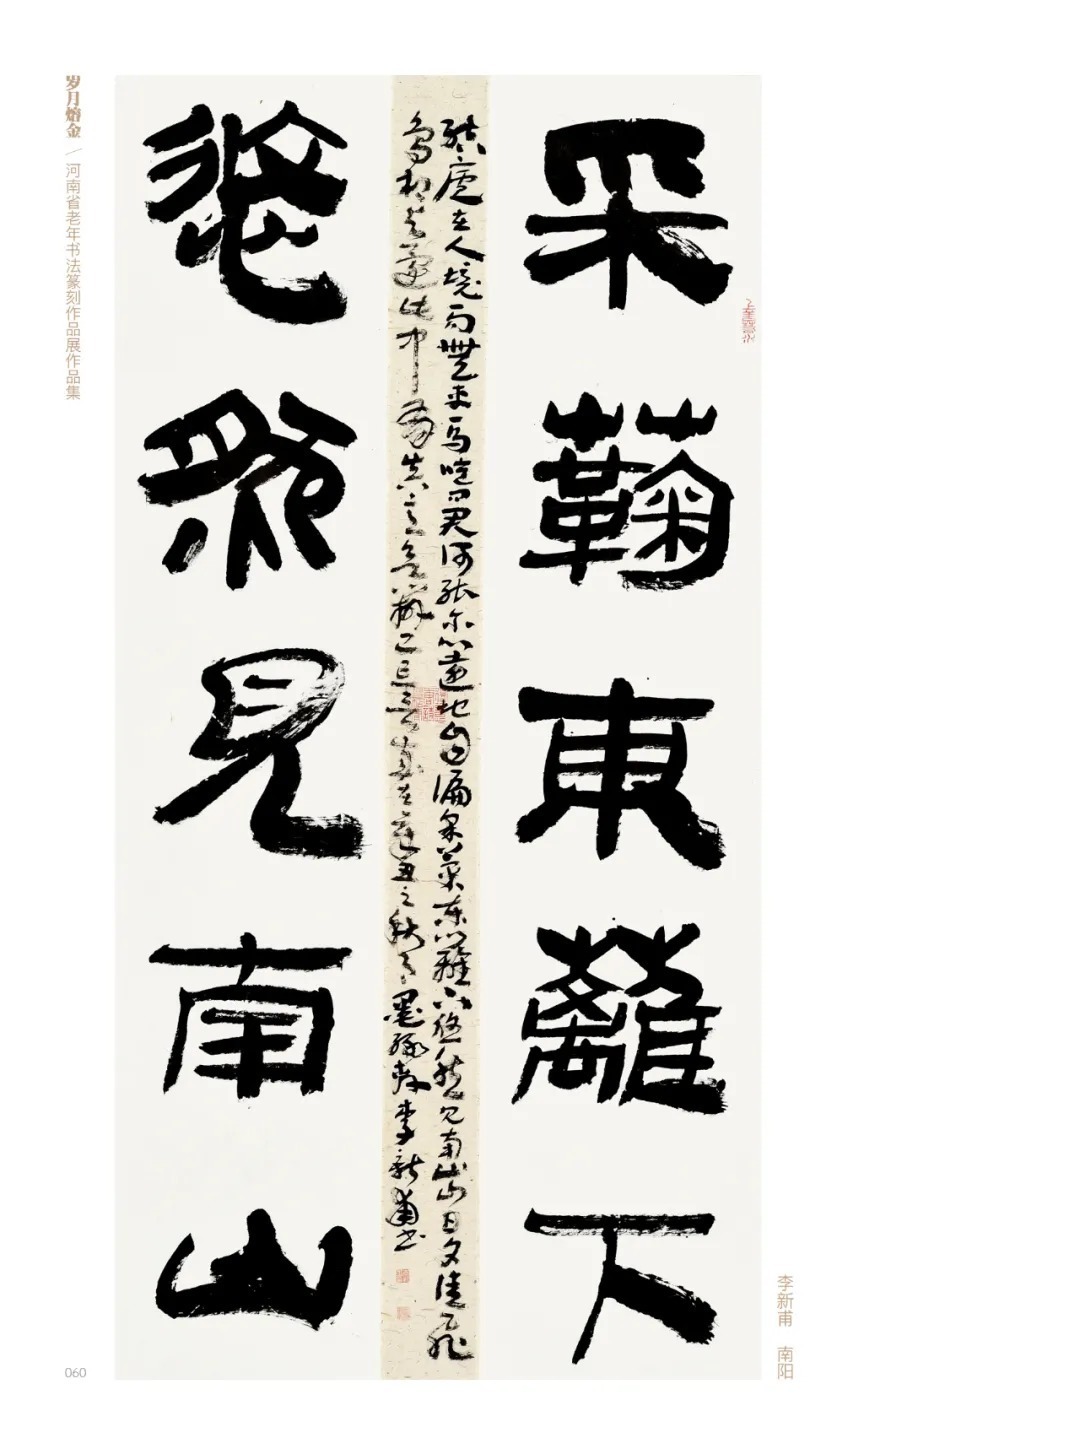 岁月熔金 / 河南省老年书法篆刻作品展作品集
采蘜東籬下
結廬在人境而無車馬喧問君何能尔心遠地自偏采菊東籬下悠然見南山日夕佳飛
鳥相與還此中有真意欲辯已忘言歲在辛丑之秋月墨緣齋李新甫書
悠然見南山
李新甫 南阳
060